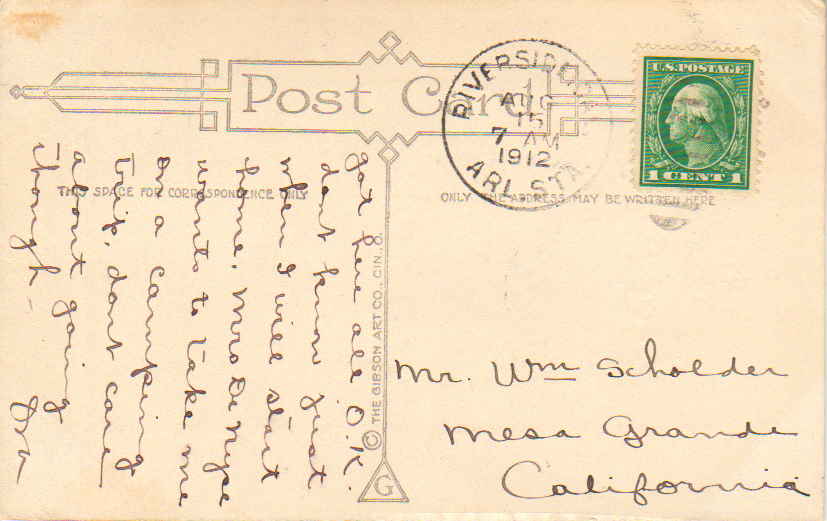 Post Card
RIVERSIDE
AUG
15
7 AM
1912
ARL. STA.
U.S. POSTAGE
1 CENT 1
THIS SPACE FOR CORRESPONDENCE ONLY
ONLY THE ADDRESS MAY BE WRITTEN HERE
got here all O.K.
dont know just
when I will start
home. Mrs De Nype
wants to take me
on a camping
trip, dont care
about going
though –
© THE GIBSON ART CO., CIN., O.
G
Mr. Wm Scholder
Mesa Grande
California